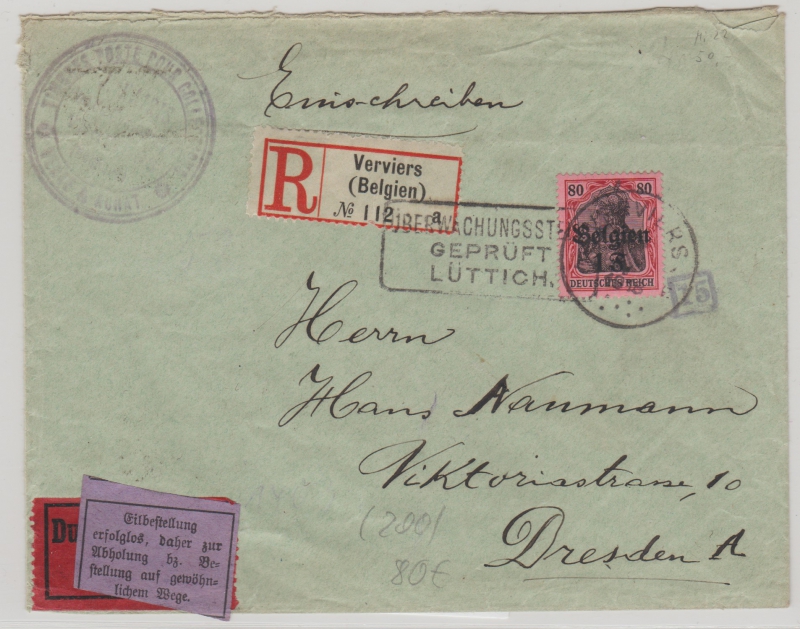 Einschreiben
R
Verviers
(Belgien).
№ 112 a
ÜBERWACHUNGSST
GEPRÜFT
LÜTTICH.
80 80
Belgien
1 F.
DEUTSCHES REICH
VERVIERS
75
Herrn
Hans Naumann
Viktoriastrasse, 10
Dresden A
Du
Eilbestellung
erfolglos, daher zur
Abholung bz. Be-
stellung auf gewöhn-
lichem Wege.
(200)
80€